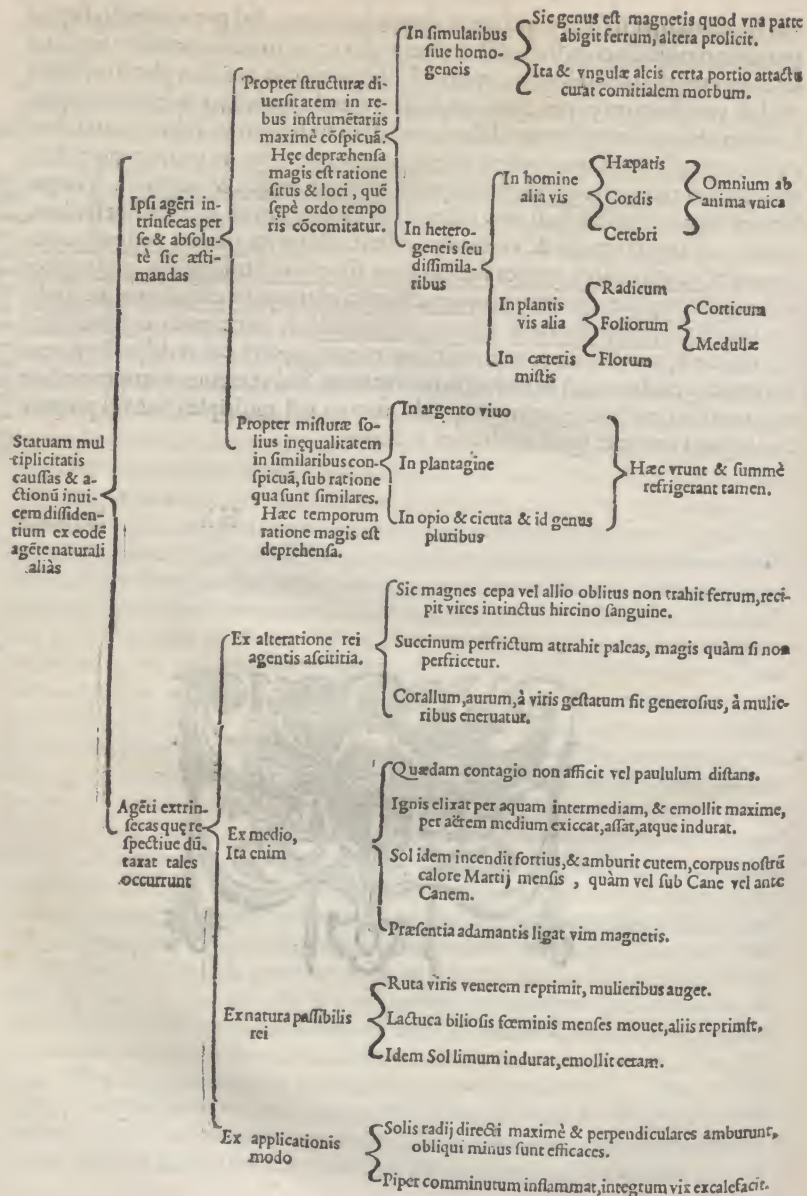 Statuam mul
tiplicitatis
caussas & a-
ctionũ inui-
cem dissiden-
tium ex eodẽ
agẽte naturali
aliàs
Ipsi agẽri in-
trinsecas per
se & absolu-
tè sic æsti-
mandas
Propter structuræ di-
uersitatem in re-
bus instrumẽtariis
maximè cõspicuã.
Hęc depræhensa
magis est ratione
situs & loci, quẽ
sępè ordo tempo
ris cõcomitatur.
In simularibus
siue homo-
geneis
Sic genus est magnetis quod vna parte
abigit ferrum, altera prolicit.
Ita & vngulæ alcis certa portio attactu
curat comitialem morbum.
In hetero-
geneis seu
dissimila-
ribus
In homine
alia vis
Hæpatis
Cordis
Cerebri
Omnium ab
anima vnica
In plantis
vis alia
Radicum
Foliorum
Florum
Corticum
Medullæ
In cæteris
mistis
Propter misturæ so-
lius inęqualitatem
in similaribus con-
spicuã, sub ratione
qua sunt similares.
Hæc temporum
ratione magis est
deprehensa.
In argento viuo
In plantagine
In opio & cicuta & id genus
pluribus
Hæc vrunt & summè
refrigerant tamen.
Agẽti extrin-
secas quę re-
spectiue dũ-
taxat tales
occurrunt
Ex alteratione rei
agentis ascititia.
Sic magnes cepa vel allio oblitus non trahit ferrum, reci-
pit vires intinctus hircino sanguine.
Succinum perfrictum attrahit paleas, magis quàm si non
perfricetur.
Corallum, aurum, à viris gestatum fit generosius, à mulie-
ribus eneruatur.
Ex medio,
Ita enim
Quædam contagio non afficit vel paululum distans.
Ignis elixat per aquam intermediam, & emollit maxime,
per aërem medium exiccat, assat, atque indurat.
Sol idem incendit fortius, & amburit cutem, corpus nostrũ
calore Martij mensis, quàm vel sub Cane vel ante
Canem.
Præsentia adamantis ligat vim magnetis.
Ex natura passibilis
rei
Ruta viris venerem reprimit, mulieribus auget.
Lactuca biliosis fœminis menses mouet, aliis reprimit.
Idem Sol limum indurat, emollit ceram.
Ex applicationis
modo
Solis radij directi maximè & perpendiculares amburunt,
obliqui minus sunt efficaces.
Piper comminutum inflammat, integrum vix excalefacit.